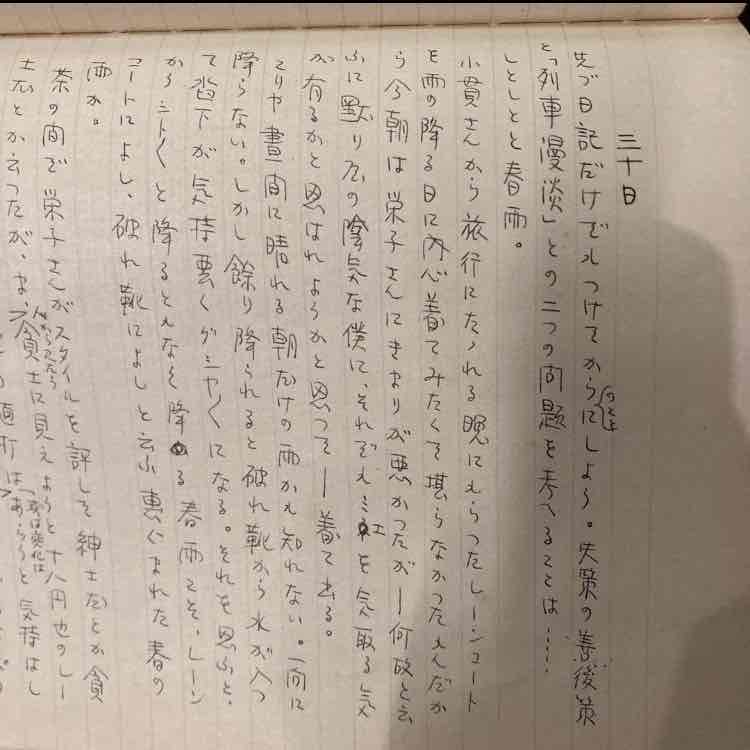 三十日
先づ日記だけでもつけてからにしよう。失策の善後策
のこと
と「列車漫談」との二つの問題を考へることは……
しとしとと春雨。
小貫さんから旅行にたゝれる晩にもらつたレーンコート
を雨の降る日に内心着てみたくて堪らなかつたもんだか
ら今朝は栄子さんにきまりが悪かつたが―何故と云
ふに黙り屋の陰気な僕に、それでも
を気取る気
が有るかと思はれようかと思つて―着て出る。
こりや昼間に晴れる朝だけの雨かも知れない。一向に
降らない。しかし余り降られると破れ靴から水が入つ
て沓下が気持悪くグシヤ〱になる。それを思ふと、
からシト〱と降るともなく降る春雨こそ、レーン
コートによし、破れ靴によしと云ふ恵ぐまれた春の
雨か。
茶の間で栄子さんがスタイルを評して紳士だとか貧
士だとか云つたが、ま、貧士に見えようと十八円也のレー
人からみたら
はあらうと気持はし